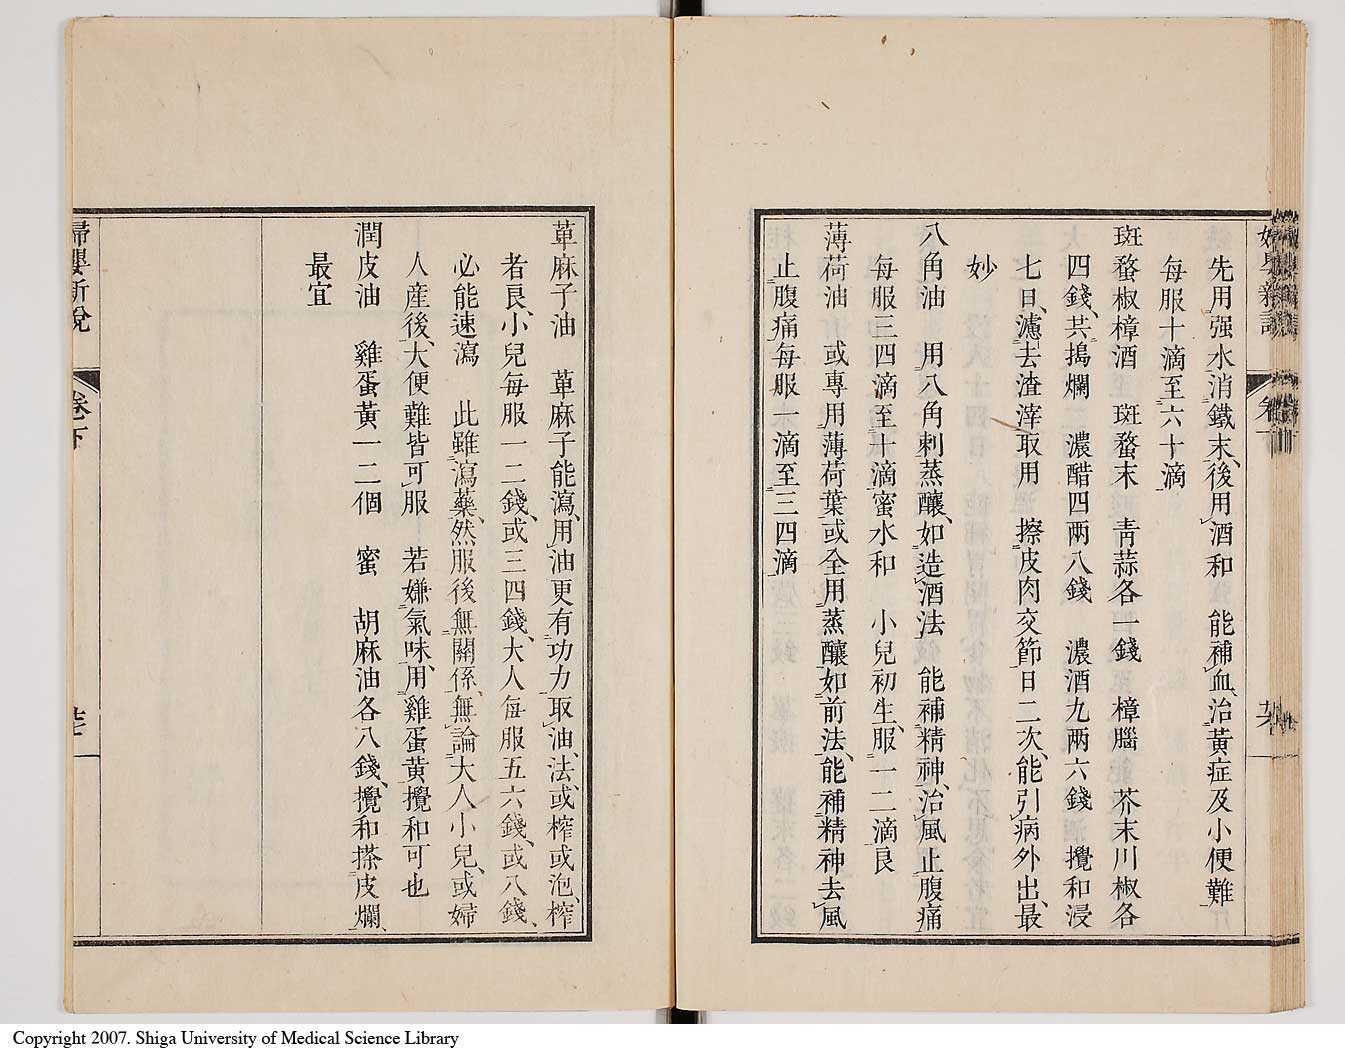 先用强水消鐵末後用酒和 能補血治黃症及小便難
每服十滴至六十滴
斑蝥椒樟酒 斑蝥末 靑蒜各一錢 樟腦芥末川椒各
四錢共搗爛 濃醋四兩八錢 濃酒九兩六錢攪和浸
七日濾去渣滓取用 擦皮肉交節日二次能引病外出最
妙
八角油 用八角刺蒸釀如造酒法 能補精神治風止腹痛
每服三四滴至十滴蜜水和 小兒初生服一二滴良
薄荷油 或專用薄荷葉或全用蒸釀如前法能補精神去風
止腹痛每服一滴至三四滴
萆麻子油 萆麻子能瀉用油更有功力取油法或榨或泡榨
者良小兒每服一二錢或三四錢大人每服五六錢或八錢
必能速瀉 此雖瀉藥然服後無關係無論大人小兒或婦
人産後大便難皆可服 若嫌氣味用雞蛋黃攪和可也
潤皮油 雞蛋黃一二個 蜜 胡麻油各八錢攪和搽皮爛
最宜
婦嬰新說
卷下
Copyright 2007. Shiga University of Medical Science Library